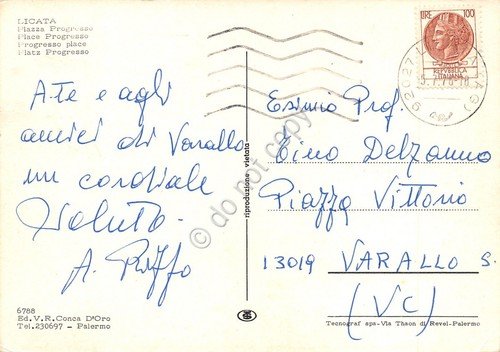 LICATA
Piazza Progresso
Place Progresso
Progresso place
Platz Progresso
A te e agli
amici di Varallo
un cordiale
saluto.
A. Rizzo
6788
Ed. V.R. Conca D'Oro
Tel. 230697 - Palermo
riproduzione vietata
LIRE 100
REPUBBLICA
ITALIANA
92027
Esimio Prof.
Tino Delzanno
Piazza Vittorio
13019 VARALLO S.
(VC)
Tecnograf spa-Via Thaon di Revel-Palermo
do not copy